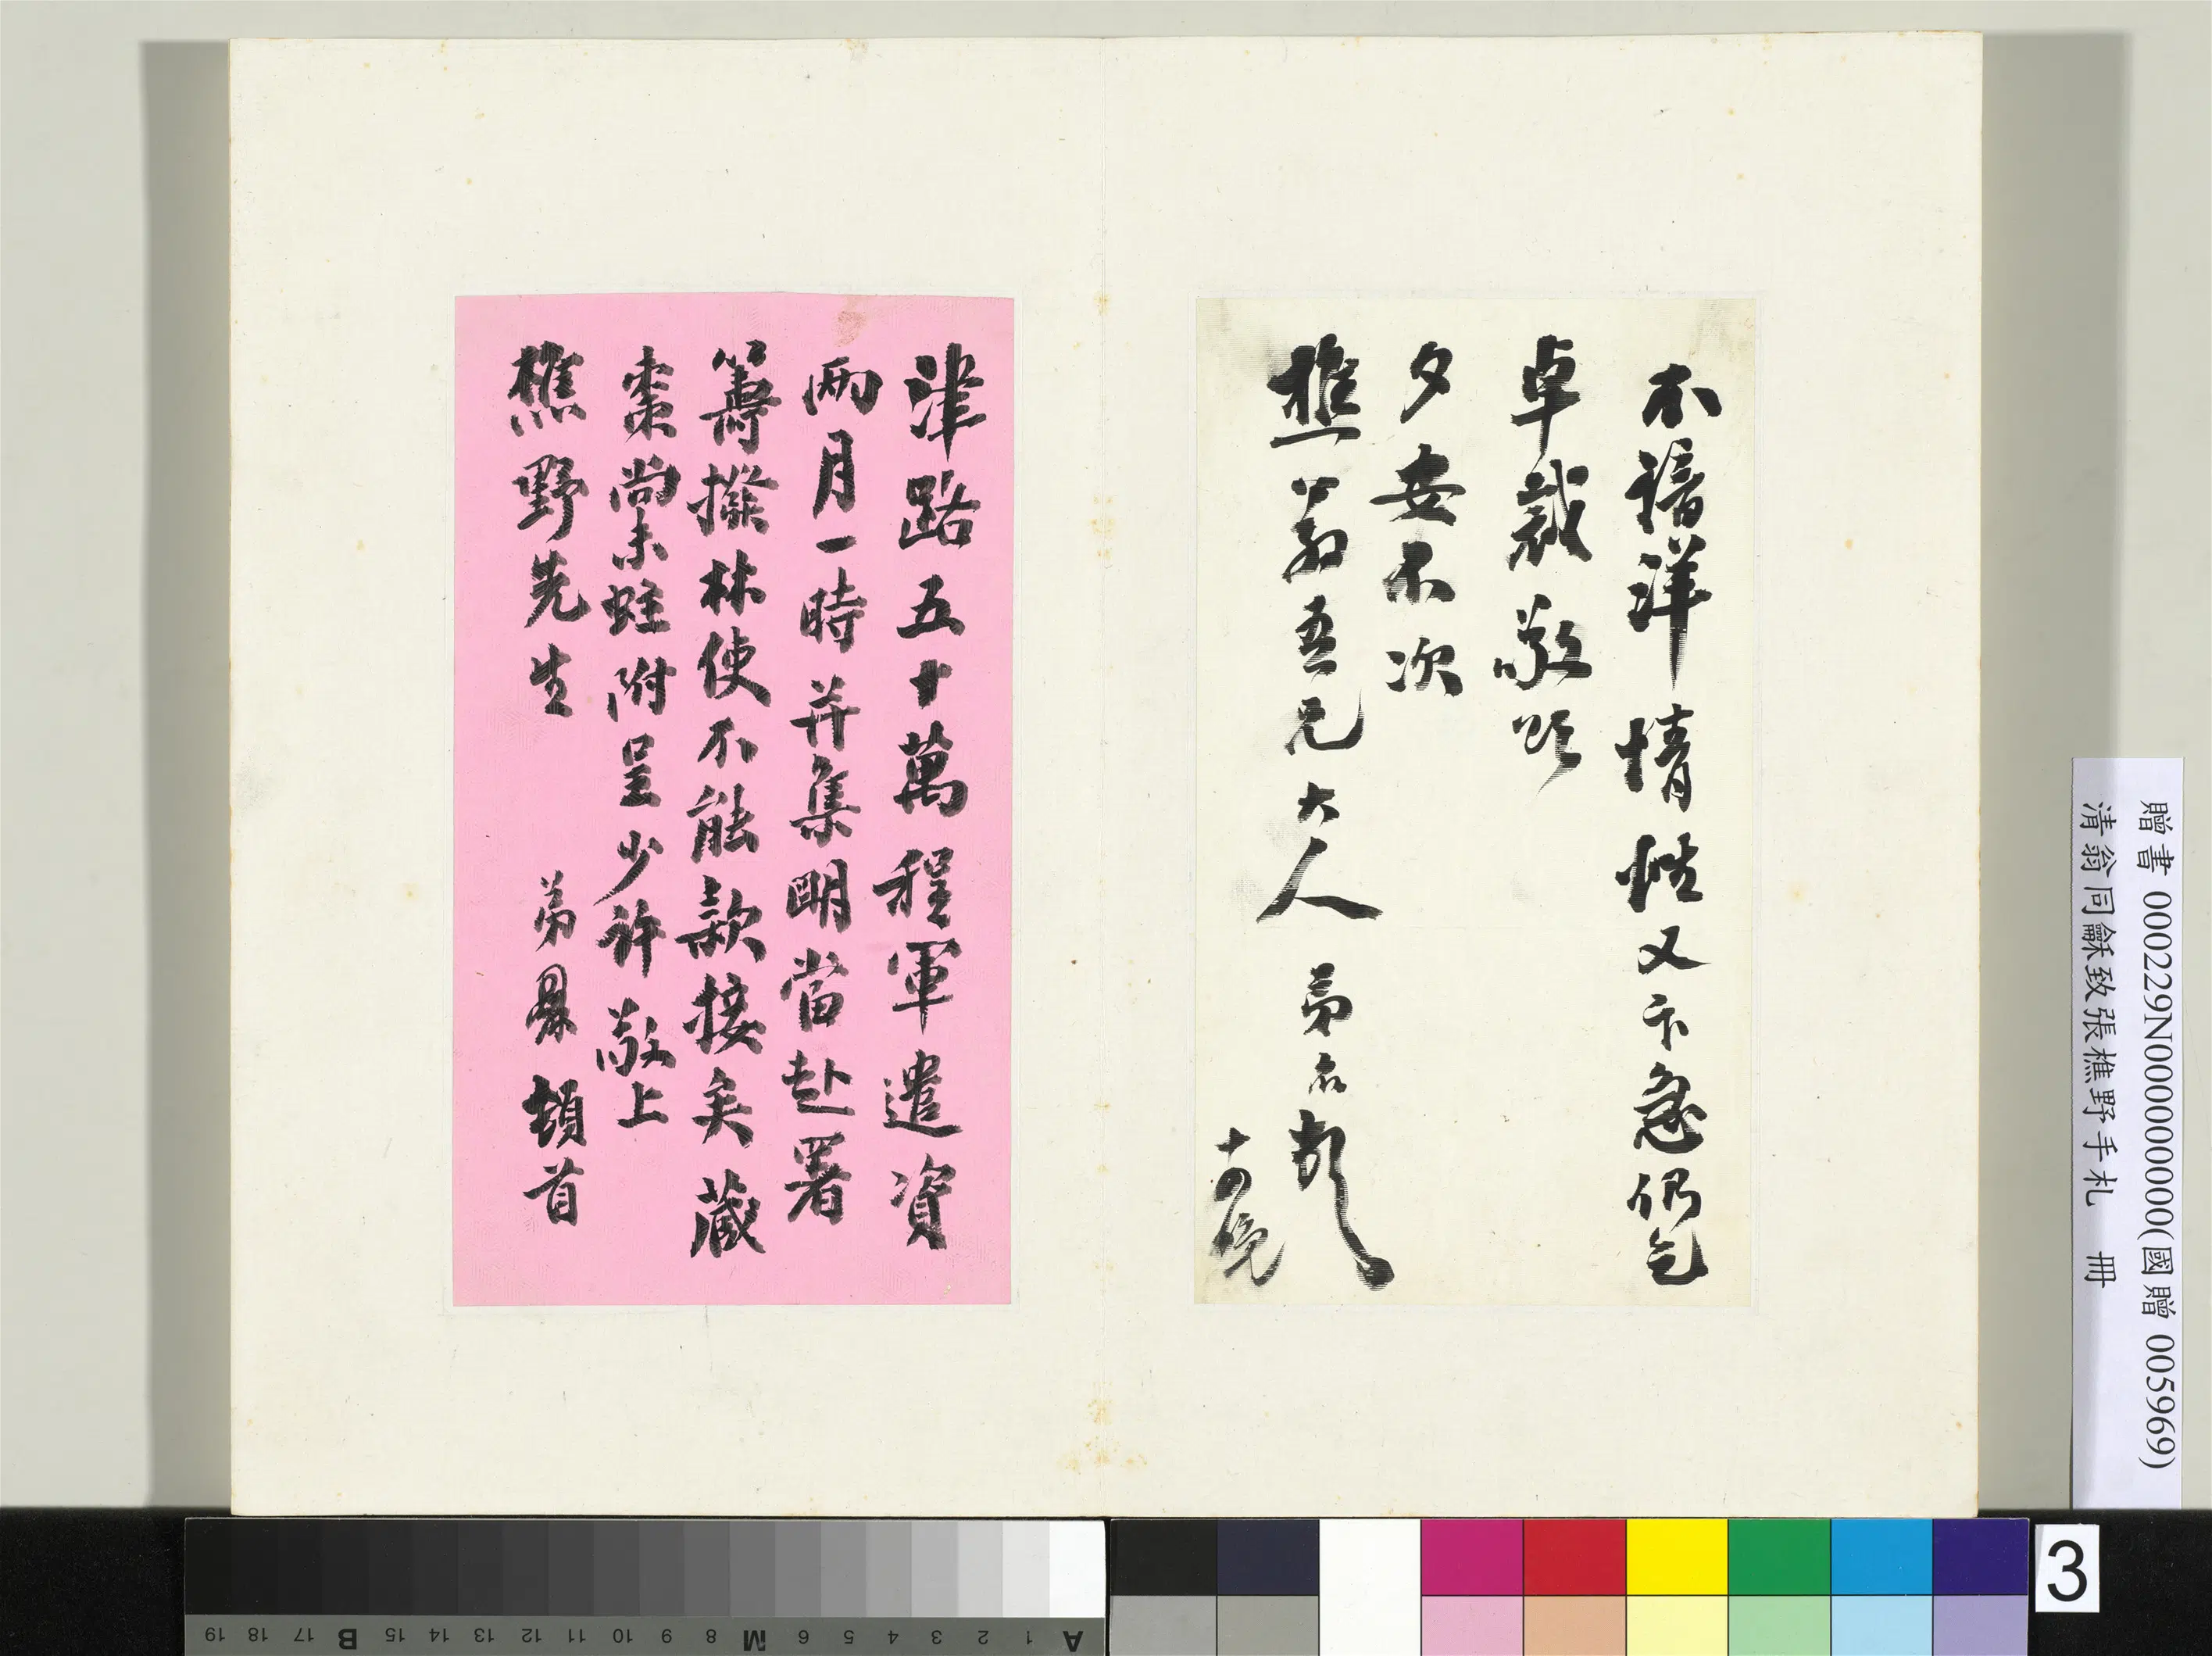 不諳洋情性又卞急仍乞
卓裁敬頌
夕安不次
樵翁吾兄大人 弟名頓
十四燈
津路五十萬程軍遣資
兩月一時并集明當赴署
籌撥林使不能款接矣藏
棗尚未蛀附呈少許敬上
樵野先生 弟 頓首
贈書 000229N000000000(國贈 005969)
清翁同龢致張樵野手札 冊
3
A 1 2 3 4 5 6 M 8 9 10 11 12 13 14 15 B 17 18 19